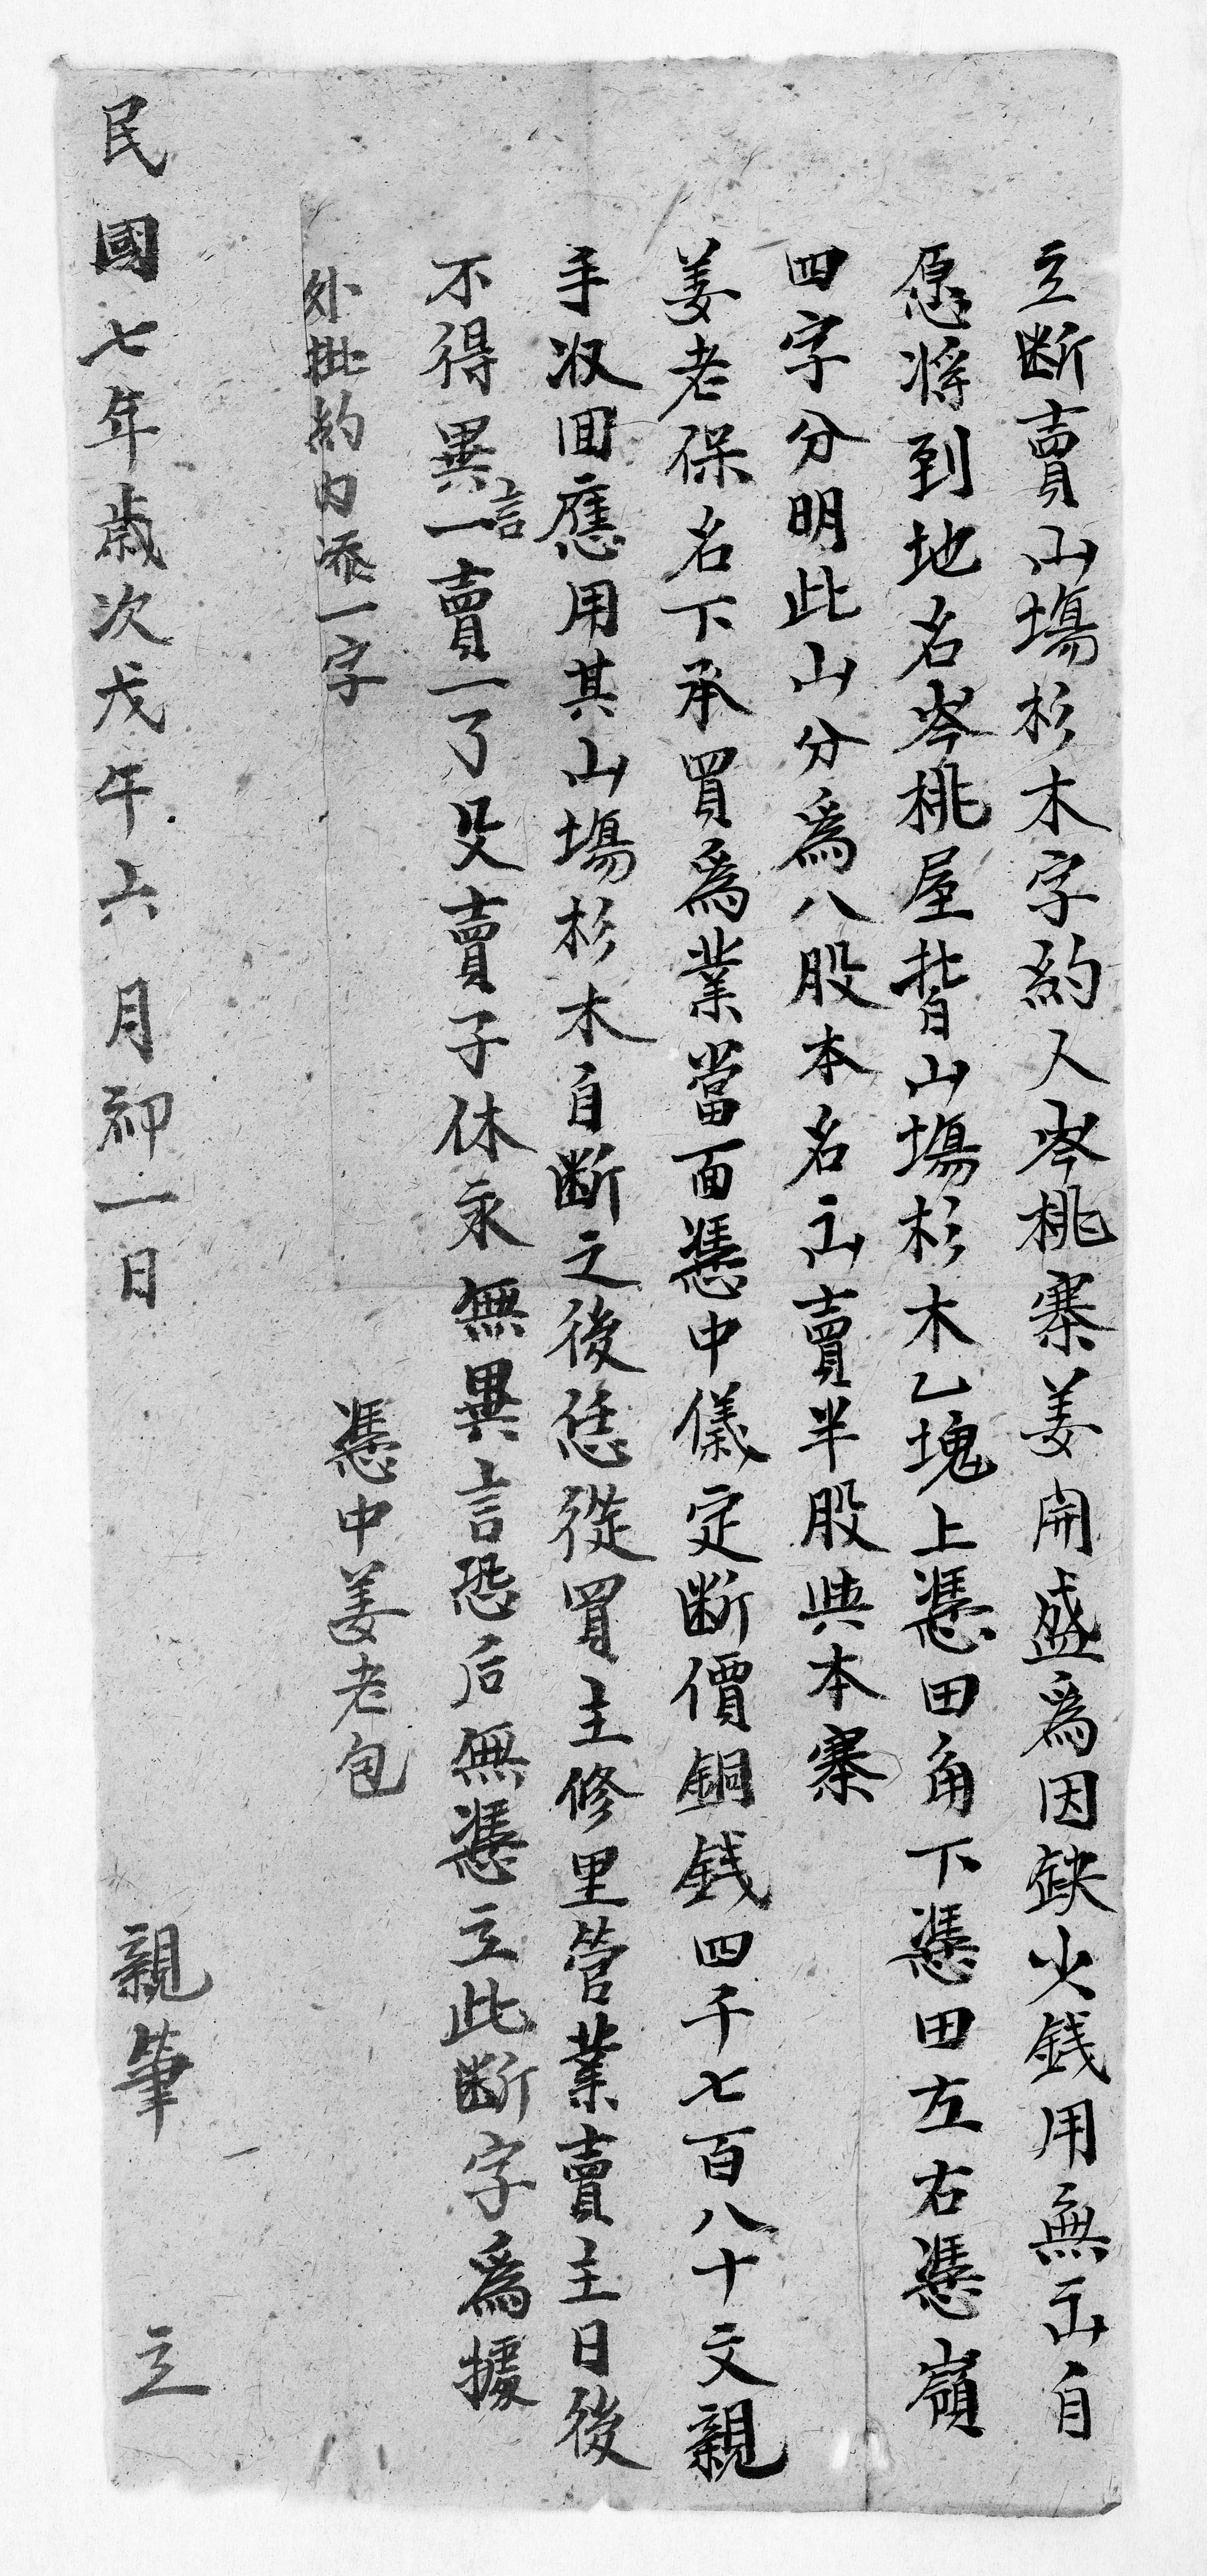 立断賣山塲杉木字約人岑桃寨姜開盛爲因缺少錢用無出自
愿將到地名岑桃屋揹山塲杉木乙塊上憑田角下憑田左右憑嶺
四字分明此山分爲八股本名出賣半股與本寨
姜老保名下承買爲業當面憑中儀定断價銅錢四千七百八十文親
手收回應用其山塲杉木自断之後恁從買主修里管業賣主日後
不得異言一賣一了父賣子休永無異言恐后無憑立此断字爲據
外批約内添一字
憑中姜老包
民國七年歲次戊午六月初一日 親筆 立